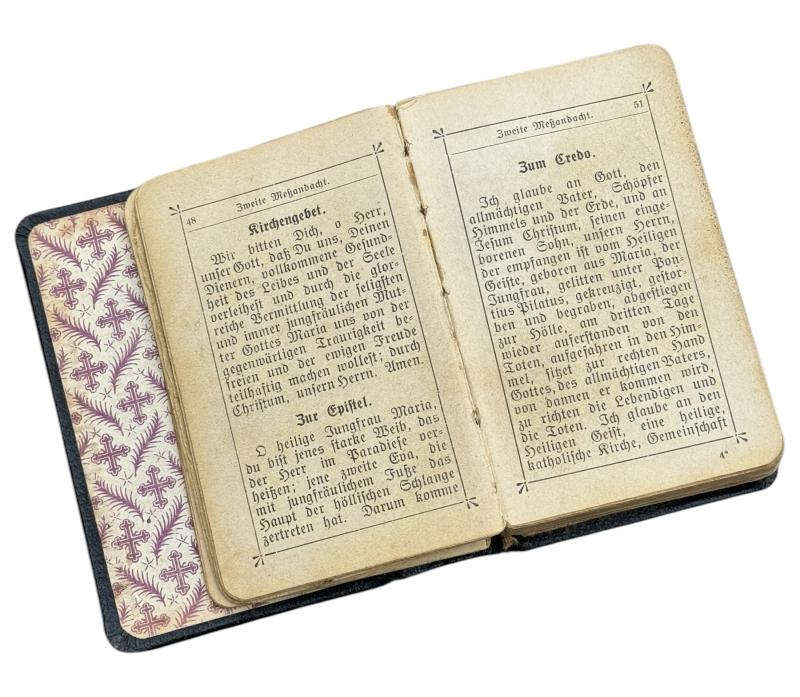 48
Zweite Meßandacht.
Kirchengebet.
Wir bitten Dich, o Herr,
unser Gott, daß Du uns, Deinen
Dienern, vollkommene Gesund-
heit des Leibes und der Seele
verleihest und durch die glor-
reiche Vermittlung der seligsten
und immer jungfräulichen Mut-
ter Gottes Maria uns von der
gegenwärtigen Traurigkeit be-
freien und der ewigen Freude
teilhaftig machen wollest; durch
Christum, unsern Herrn. Amen.
Zur Epistel.
O heilige Jungfrau Maria,
du bist jenes starke Weib, das
der Herr im Paradiese ver-
heißen; jene zweite Eva, die
mit jungfräulichem Fuße das
Haupt der höllischen Schlange
zertreten hat. Darum komme
Zweite Meßandacht.
51
Zum Credo.
Ich glaube an Gott, den
allmächtigen Vater, Schöpfer
Himmels und der Erde, und an
Jesum Christum, seinen einge-
borenen Sohn, unsern Herrn,
der empfangen ist vom Heiligen
Geiste, geboren aus Maria, der
Jungfrau, gelitten unter Pon-
tius Pilatus, gekreuzigt, gestor-
ben und begraben, abgestiegen
zur Hölle, am dritten Tage
wieder auferstanden von den
Toten, aufgefahren in den Him-
mel, sitzet zur rechten Hand
Gottes, des allmächtigen Vaters,
von dannen er kommen wird,
zu richten die Lebendigen und
die Toten. Ich glaube an den
Heiligen Geist, eine heilige,
katholische Kirche, Gemeinschaft
4*